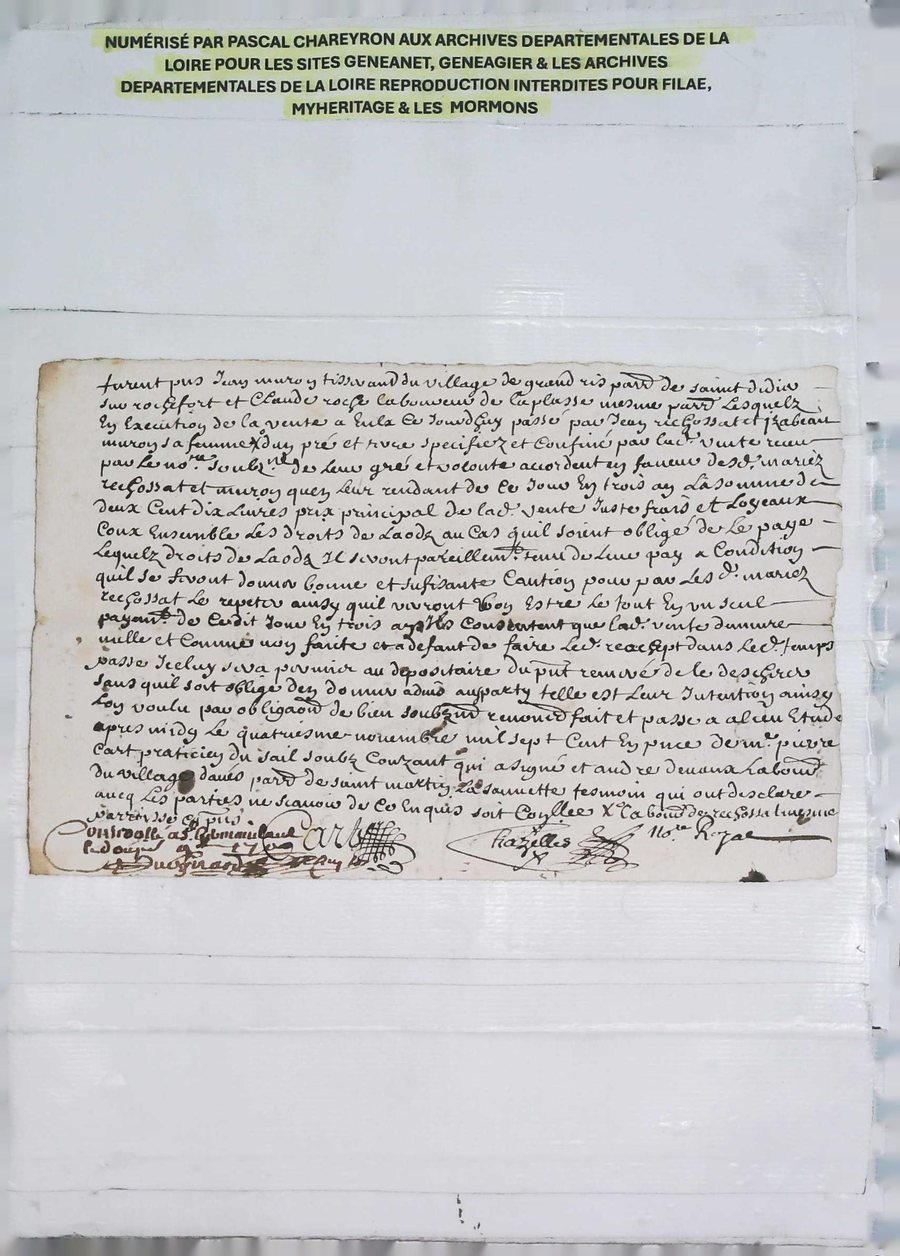 NUMÉRISÉ PAR PASCAL CHAREYRON AUX ARCHIVES DEPARTEMENTALES DE LA
LOIRE POUR LES SITES GENEANET, GENEAGIER & LES ARCHIVES
DEPARTEMENTALES DE LA LOIRE REPRODUCTION INTERDITES POUR FILAE,
MYHERITAGE & LES MORMONS
furent pns Jean muron tisserand du village de grand ris parr de saint didier
sur rochefort et Claude roche laboureur de laplasse mesme parr Lesquelz
En Execution de la vente a Eulx Ce Jourdhuy passé par Jean rechossat et Izabeau
muron sa femme du pré et terre specifiez et Confiné par lad. vente receu
par le nore soubzné de Leur gré et volonte accordent en faveur desd. mariez
rechossat et muron quen Leur rendant de Ce Jour En trois an La somme de
deux Cent dix Livres prix principal de lad. vente Juste frais et Loyeaux
Coux Ensemble Les droits de Laodz au Cas quil soient obligé de Le paye
Lequelz droits de Laodz Il seront pareillemt tenu de Luy pay a Condition
quil se feront donner bonne et sufisante Caution pour par Les d. mariez
rechossat Le repeter ainsy quil verront bon Estre Le tout En un seul
payant de Cedit Jour En trois an Ils Consentent que lad. vente demure
nulle et Comme non faite et a defaut de faire Led. reachept dans Led. temps
passe Iceluy sera
sans quil soit obligé den donner admis au party telle est Leur Intention ainsy
Lon voulu par obligaon de bien soubzmi renoncd fait et passe a alieu Etude
apres midy Le quatriesme novembre mil sept Cent En pnce de me pierre
Cart praticien du sail soubz Couzant qui a signé et andre devaux Labour
du village daues parr de saint martin La sauvette tesmoin qui ont desclare
avecq Les parties ne scavoir de Ce Enquis soit
Cart
Chazelles
nore Royal
Controlle a St Germain Laval
1700